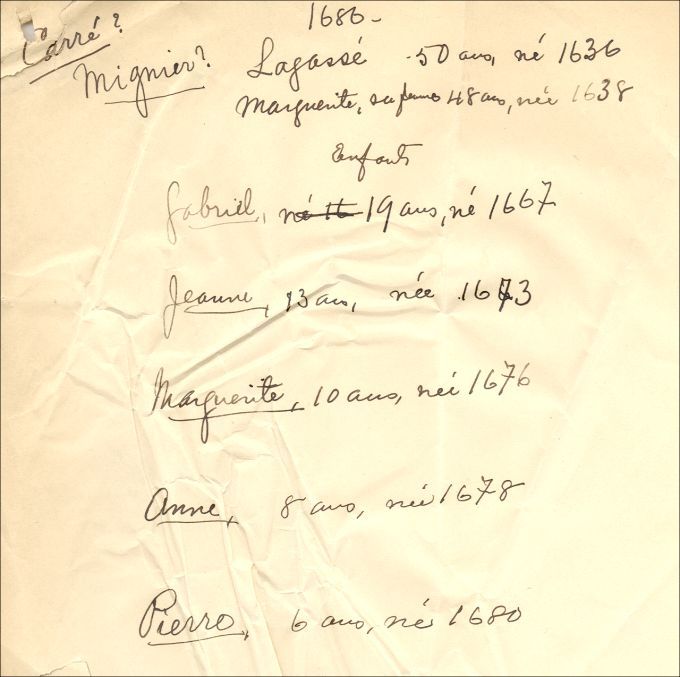 1686-
Carré?
Mignier? Lagassé - 50 ans, né 1636
Marguerite, sa femme 48 ans, née 1638
Enfants
Gabriel, né 16 19 ans, né 1667
Jeanne, 13 ans, née 1673
Marguerite, 10 ans, née 1676
Anne, 8 ans, née 1678
Pierre, 6 ans, né 1680